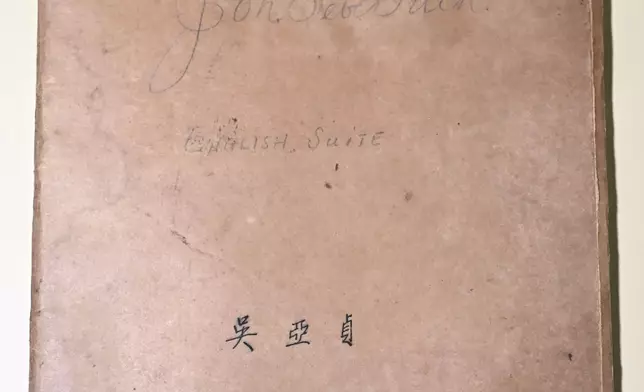 Joh. Seb. Bach.
ENGLISH. SUITE
吳 亞 貞